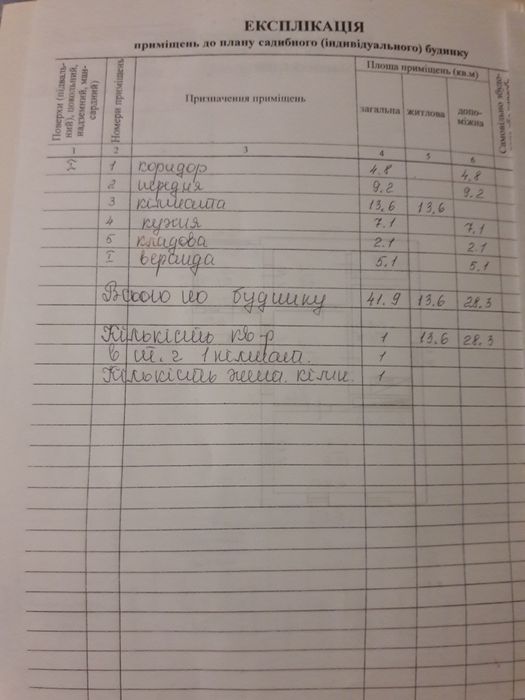 ЕКСПЛІКАЦІЯ
приміщень до плану садибного (індивідуального) будинку
Поверхи (підваль-
ний), цокольний,
надземний, ман-
сардний)
Номери приміщень
Призначення приміщень
Площа приміщень (кв.м)
загальна
житлова
допо-
міжна
Самовільно
1 2 3 4 5 6
1 коридор 4.8 4.8
2 передня 9.2 9.2
3 кімната 13.6 13.6
4 кухня 7.1 7.1
5 кладова 2.1 2.1
I веранда 5.1 5.1
Всього по будинку 41.9 13.6 28.3
Кількість кв-р 1 13.6 28.3
в т.ч 1 кімнат. 1
Кількість житл. кімн. 1